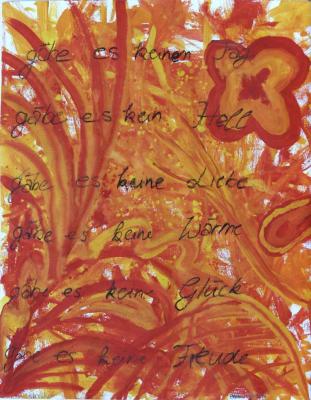 gäbe es keinen Tag
gäbe es kein Hell
gäbe es keine Liebe
gäbe es keine Wärme
gäbe es kein Glück
gäbe es keine Freude